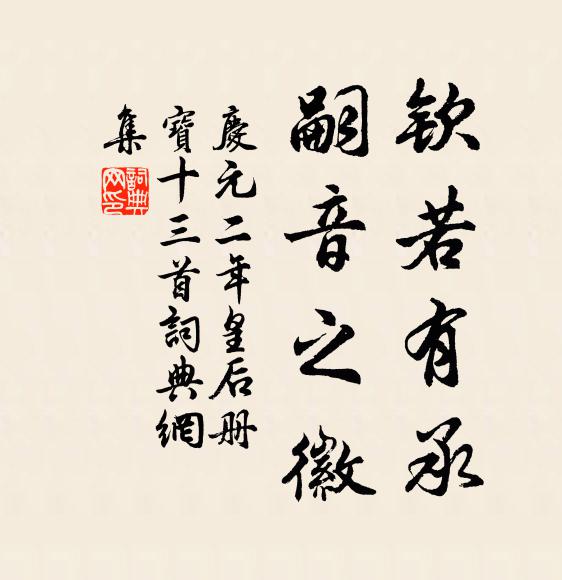 欽若有承
嗣音之徽
慶元二年皇后册
寶十三首詞典網
集
詞典
网印